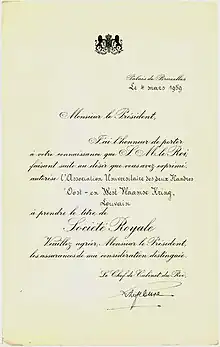 Palais de Bruxelles
Le 4 mars 1959
Monsieur le Président,
J'ai l'honneur de porter
à votre connaissance que S.M. le Roi,
faisant suite au désir que vous avez exprimé,
autorise l'Association Universitaire des deux Flandres
"Oost- en West Vlaamse Kring,
Louvain
à prendre le titre de
Société Royale
Veuillez agréer, Monsieur le Président,
les assurances de ma considération distinguée.
Le Chef de Cabinet du Roi,